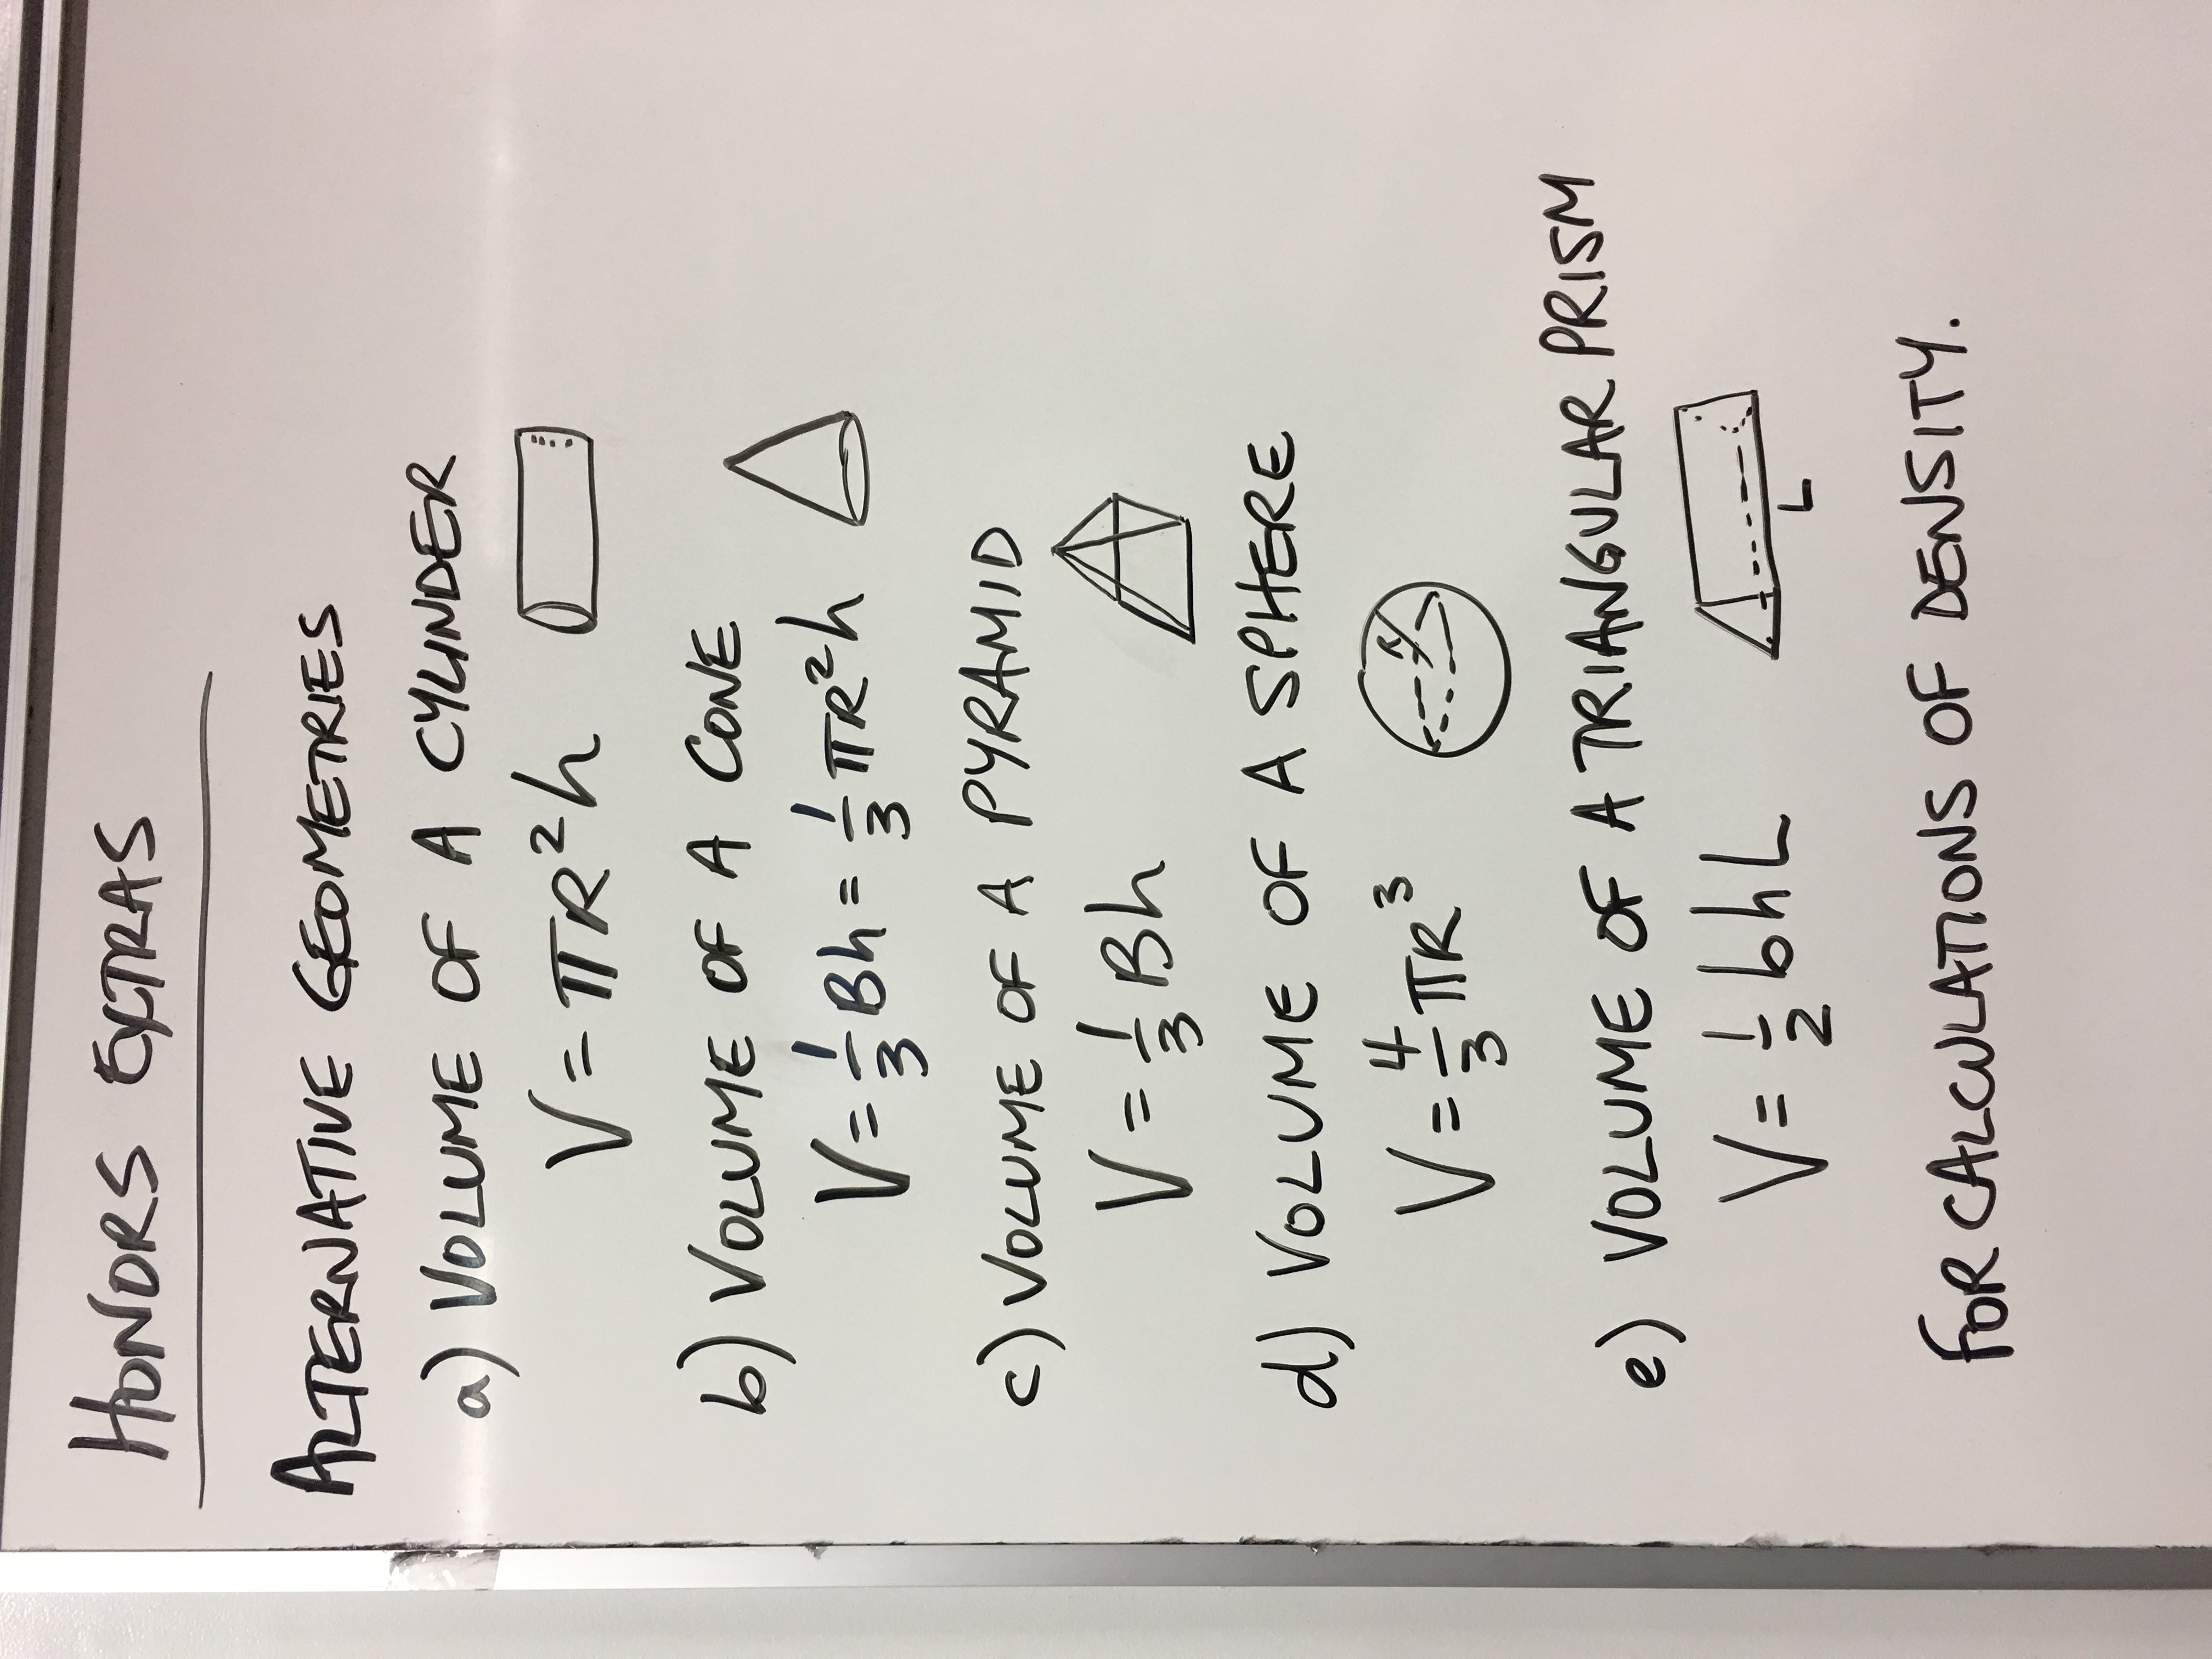 HONORS EXTRAS
ALTERNATIVE GEOMETRIES
a) VOLUME OF A CYLINDER
V = πR²h
b) VOLUME OF A CONE
V = 1/3 Bh = 1/3 πR²h
c) VOLUME OF A PYRAMID
V = 1/3 Bh
d) VOLUME OF A SPHERE
R
V = 4/3 πR³
e) VOLUME OF A TRIANGULAR PRISM
V = 1/2 bhL
L
FOR CALCULATIONS OF DENSITY.